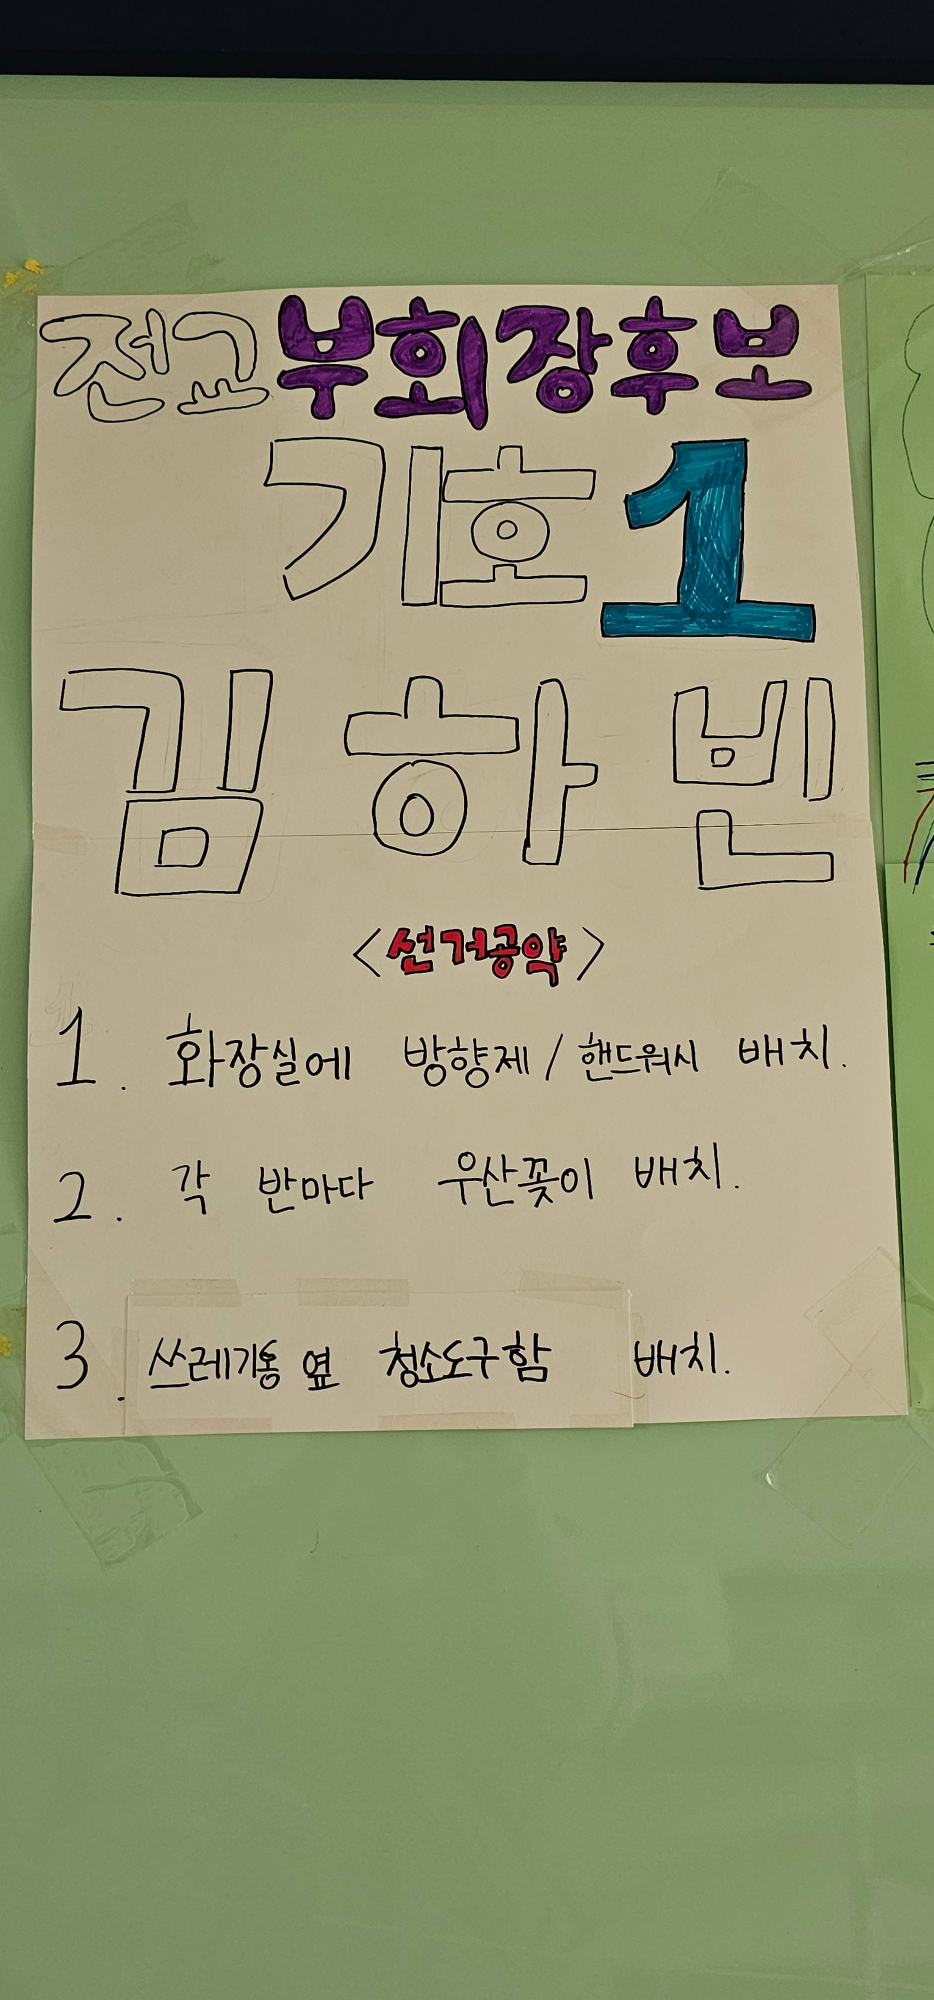 전교 부회장후보
기호 1
김하빈
<선거공약>
1. 화장실에 방향제 / 핸드워시 배치.
2. 각 반마다 우산꽂이 배치.
3. 쓰레기통 옆 청소도구함 배치.